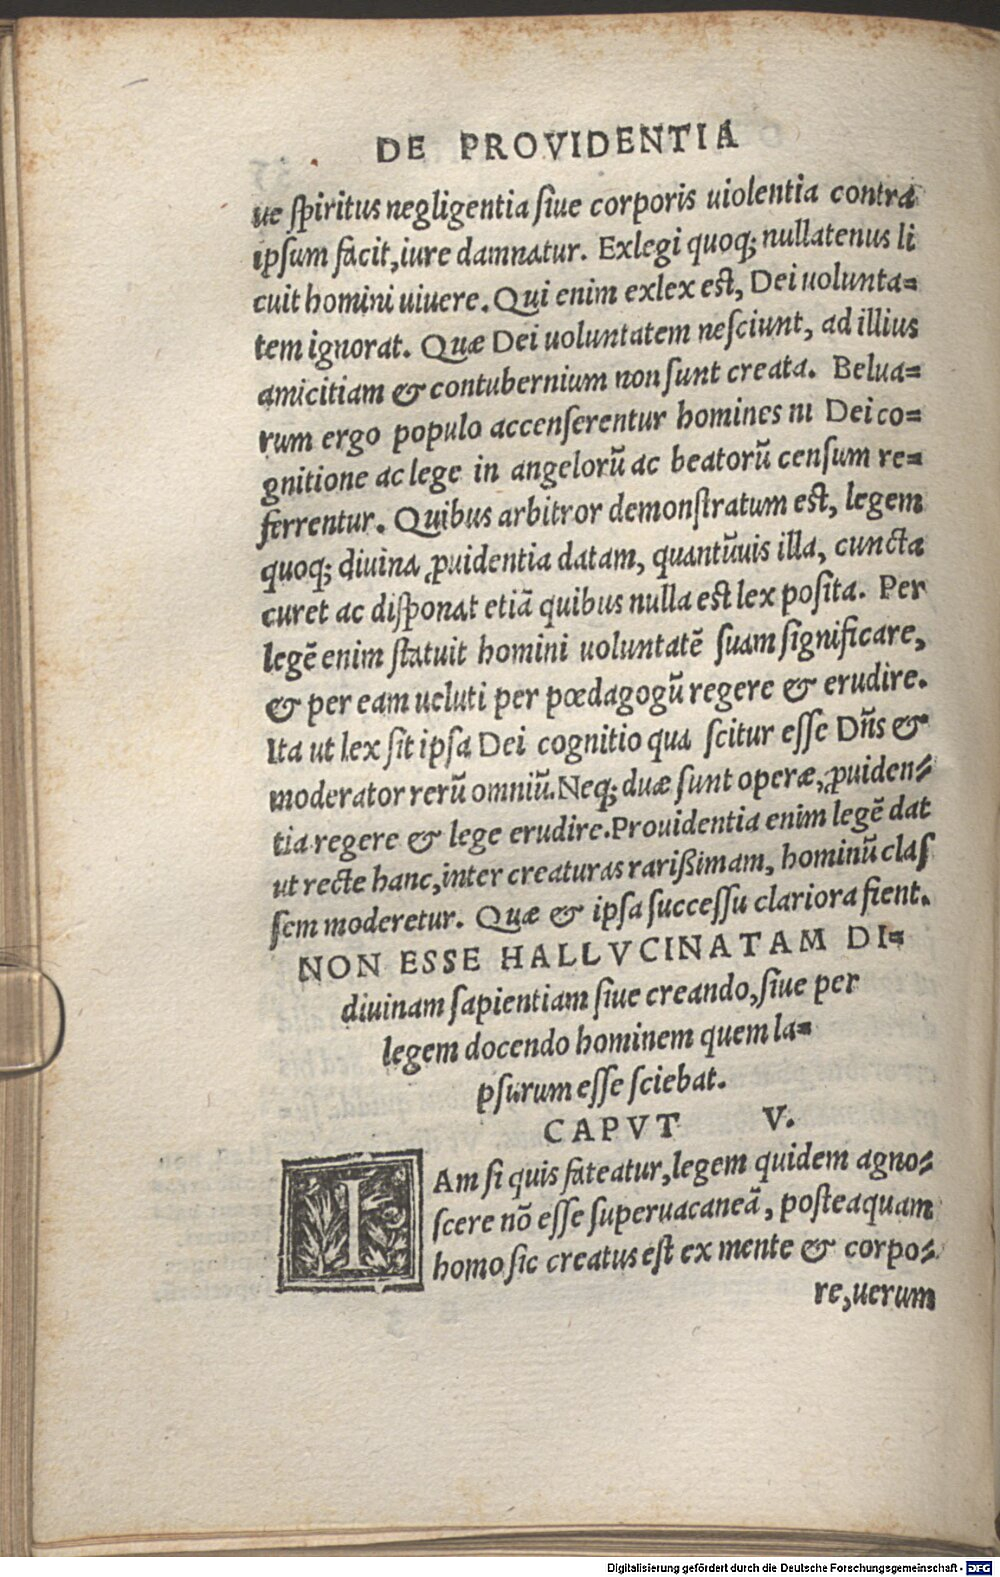 DE PROVIDENTIA
ue ſpiritus negligentia ſiue corporis uiolentia contra
ipſum facit, iure damnatur. Exlegi quoq; nullatenus li
cuit homini uiuere. Qui enim exlex eſt, Dei uolunta=
tem ignorat. Quæ Dei uoluntatem neſciunt, ad illius
amicitiam & contubernium non ſunt creata. Belua=
rum ergo populo accenſerentur homines ni Dei co=
gnitione ac lege in angelorũ ac beatorũ cenſum re=
ferrentur. Quibus arbitror demonſtratum eſt, legem
quoq; diuina ꝓuidentia datam, quantũuis illa, cuncta
curet ac diſponat etiã quibus nulla eſt lex poſita. Per
legẽ enim ſtatuit homini uoluntatẽ ſuam ſignificare,
& per eam ueluti per pœdagogũ regere & erudire.
Ita ut lex ſit ipſa Dei cognitio qua ſcitur eſſe Dñs &
moderator rerũ omniũ. Neq; duæ ſunt operæ, ꝓuiden=
tia regere & lege erudire. Prouidentia enim legẽ dat
ut recte hanc, inter creaturas rarißimam, hominũ claſ
ſem moderetur. Quæ & ipſa ſucceſſu clariora fient.
NON ESSE HALLVCINATAM DI=
diuinam ſapientiam ſiue creando, ſiue per
legem docendo hominem quem la=
pſurum eſſe ſciebat.
CAPVT V.
IAm ſi quis fateatur, legem quidem agno=
ſcere nõ eſſe ſuperuacaneã, poſteaquam
homo ſic creatus eſt ex mente & corpo=
re, uerum
Digitalisierung gefördert durch die Deutsche Forschungsgemeinschaft - DFG